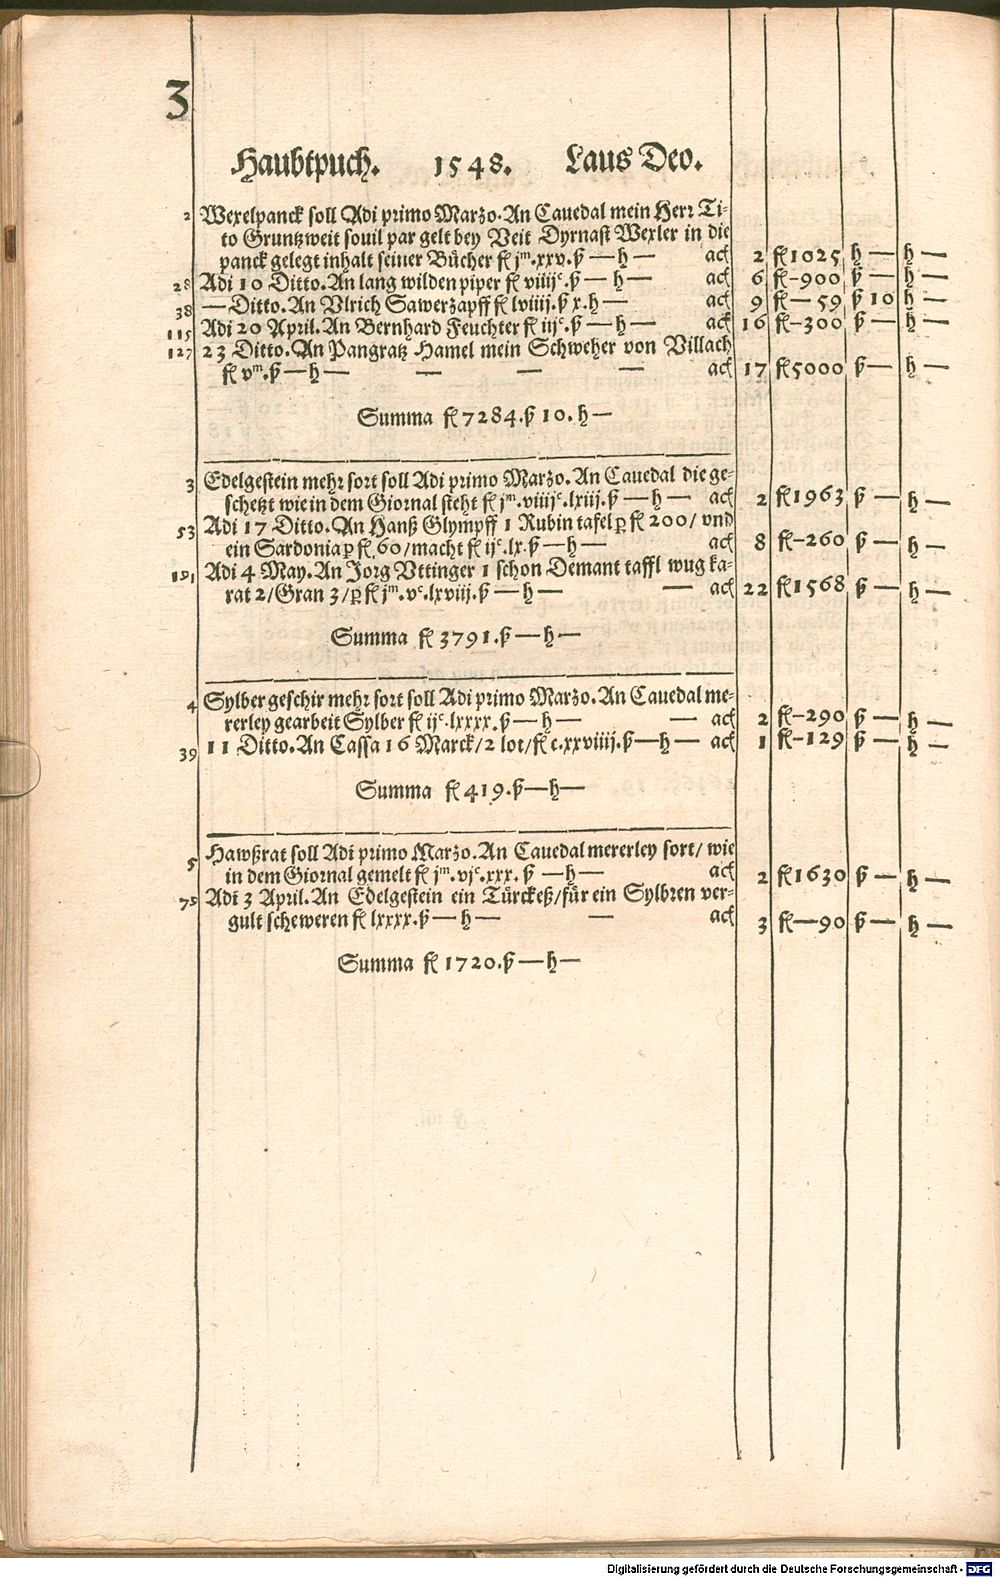 3
Haubtpuch. 1548. Laus Deo.
2 Wexelpanck soll Adi primo Marzo. An Cauedal mein Herr Ti-
to Gruntzweit souil par gelt bey Veit Dyrnast Wexler in die
panck gelegt inhalt seiner Bücher fl jᵐ.xxv.ß — h — acł 2 fl 1025 h — h —
28 Adi 10 Ditto. An lang wilden piper fl viiijᶜ.ß — h — acł 6 fl – 900 ß — h —
38 — Ditto. An Vlrich Sawerzapff fl lviiij.ß x.h — acł 9 fl — 59 ß 10 h —
115 Adi 20 April. An Bernhard Feuchter fl iijᶜ.ß — h — acł 16 fl – 300 ß — h —
127 23 Ditto. An Pangratz Hamel mein Schweher von Villach
fl vᵐ.ß — h — — — — acł 17 fl 5000 ß — h —
Summa fl 7284.ß 10.h —
3 Edelgestein mehr sort soll Adi primo Marzo. An Cauedal die ge-
schetzt wie in dem Giornal steht fl jᵐ.viiijᶜ.lxiij.ß — h — acł 2 fl 1963 ß — h —
53 Adi 17 Ditto. An Hanß Glympff 1 Rubin tafel ꝑ fl 200/ vnd
ein Sardonia ꝑ fl 60/macht fl ijᶜ.lx.ß — h — acł 8 fl – 260 ß — h —
191 Adi 4 May. An Jorg Vttinger 1 schon Demant taffl wug ka-
rat 2/Gran 3/ꝑ fl jᵐ.vᶜ.lxviij.ß — h — — acł 22 fl 1568 ß — h —
Summa fl 3791.ß — h —
4 Sylber geschir mehr sort soll Adi primo Marzo. An Cauedal me-
rerley gearbeit Sylber fl ijᶜ.lxxxx.ß — h — — acł 2 fl – 290 ß — h —
39 11 Ditto. An Cassa 16 Marck/2 lot/fl c.xxviiij.ß — h — acł 1 fl – 129 ß — h —
Summa fl 419.ß — h —
5 Hawßrat soll Adi primo Marzo. An Cauedal mererley sort/ wie
in dem Giornal gemelt fl jᵐ.vjᶜ.xxx. ß — h — acł 2 fl 1630 ß — h —
75 Adi 3 April. An Edelgestein ein Türckeß/für ein Sylbren ver-
gult scheweren fl lxxxx.ß — h — — acł 3 fl — 90 ß — h —
Summa fl 1720.ß — h —
Digitalisierung gefördert durch die Deutsche Forschungsgemeinschaft - DFG